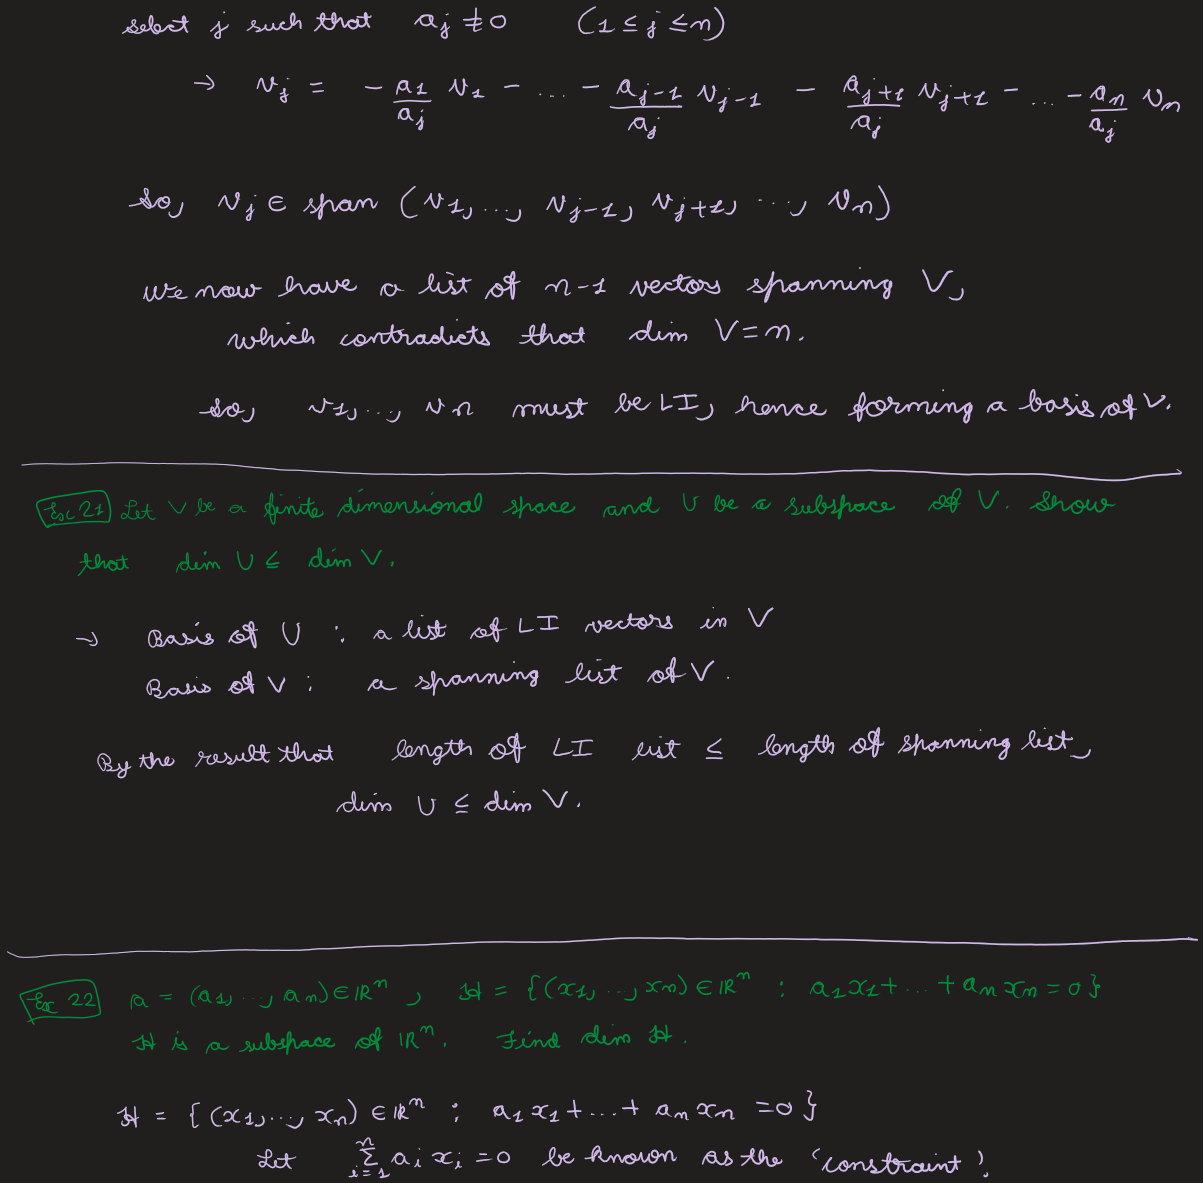 select j such that a_j ≠ 0 (1 ≤ j ≤ n)
→ v_j = - a_1/a_j v_1 - ... - a_{j-1}/a_j v_{j-1} - a_{j+1}/a_j v_{j+1} - ... - a_n/a_j v_n
So, v_j ∈ span (v_1, ..., v_{j-1}, v_{j+1}, ..., v_n)
We now have a list of n-1 vectors spanning V,
which contradicts that dim V = n.
So, v_1, ..., v_n must be LI, hence forming a basis of V.
Exc 21 Let V be a finite dimensional space and U be a subspace of V. Show
that dim U ≤ dim V.
→ Basis of U : a list of LI vectors in V
Basis of V : a spanning list of V.
By the result that length of LI list ≤ length of spanning list,
dim U ≤ dim V.
Exc 22 a = (a_1, ..., a_n) ∈ ℝ^n , H = {(x_1, ..., x_n) ∈ ℝ^n : a_1 x_1 + ... + a_n x_n = 0}
H is a subspace of ℝ^n. Find dim H.
H = {(x_1, ..., x_n) ∈ ℝ^n : a_1 x_1 + ... + a_n x_n = 0}
Let ∑_{i=1}^n a_i x_i = 0 be known as the 'constraint'.